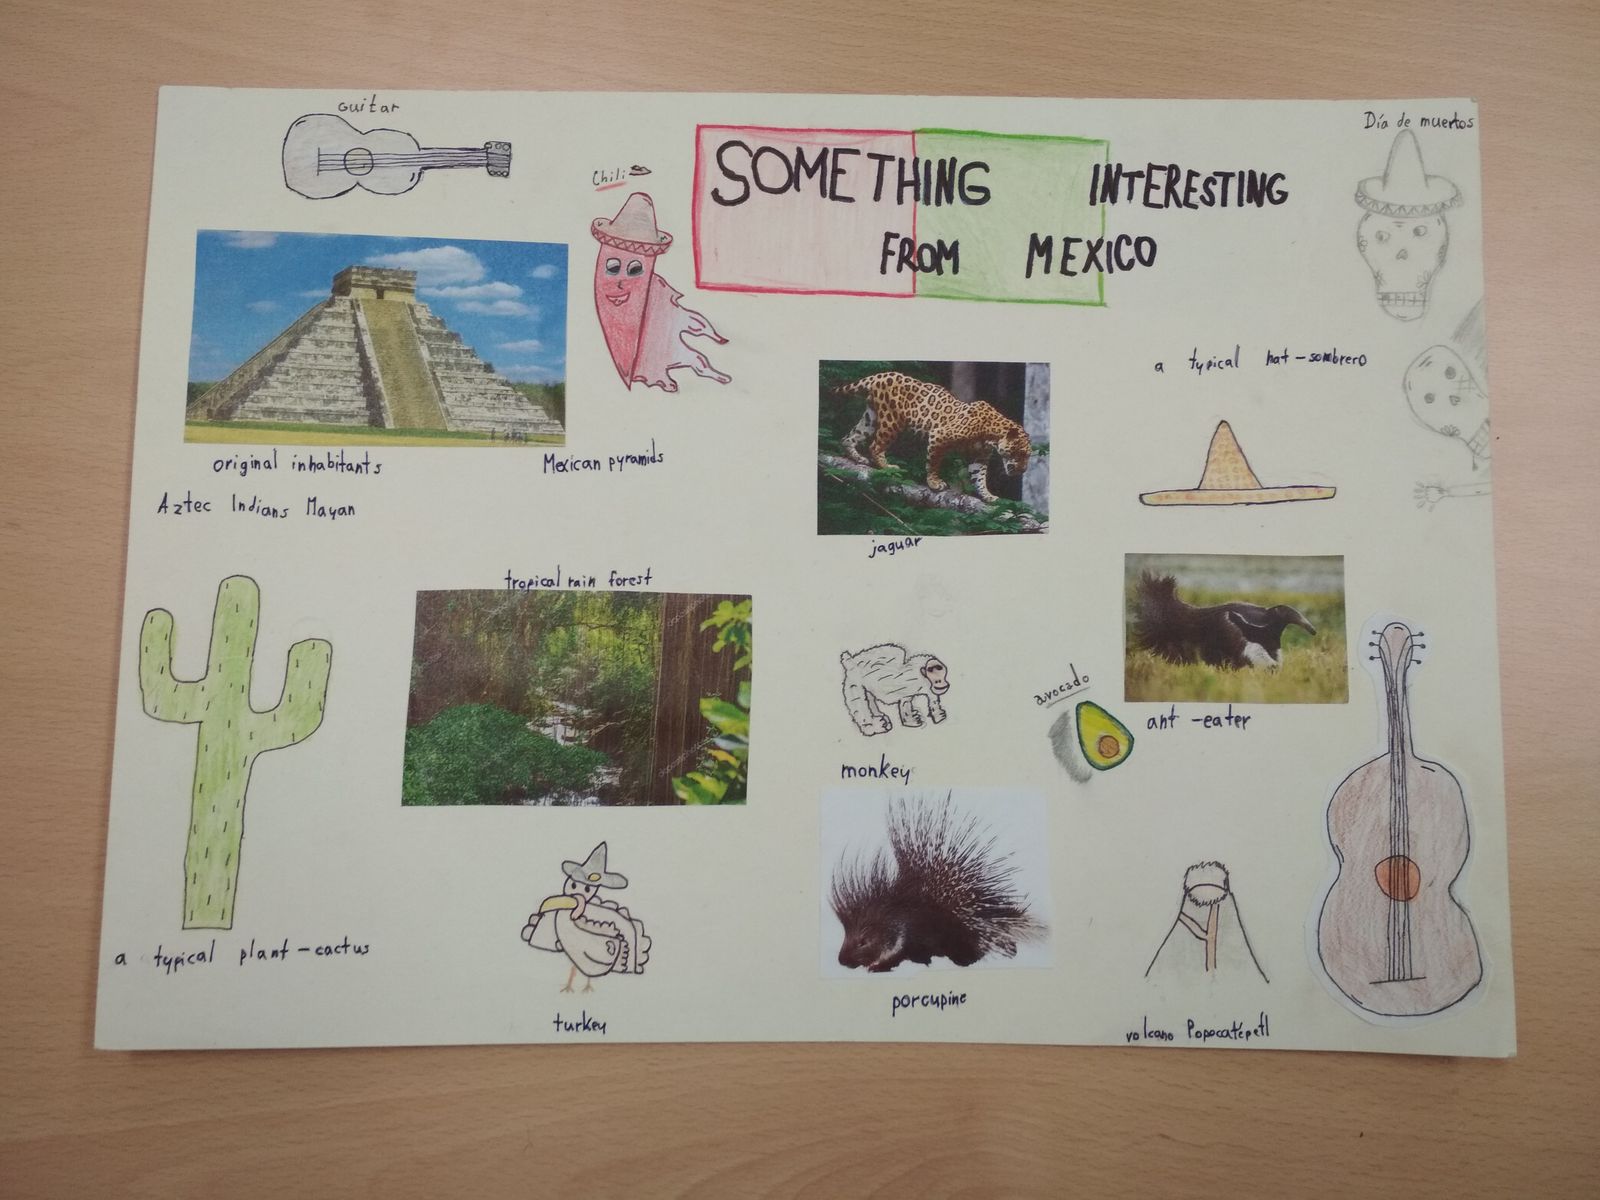 guitar
Chili
SOMETHING INTERESTING
FROM MEXICO
Día de muertos
original inhabitants
Mexican pyramids
Aztec Indians Mayan
jaguar
a typical hat - sombrero
tropical rain forest
monkey
avocado
ant - eater
a typical plant - cactus
turkey
porcupine
volcano Popocatépetl